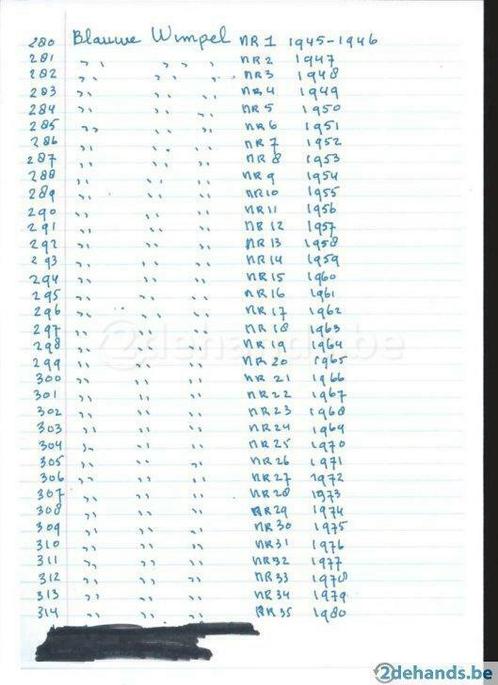 280 Blauwe Wimpel NR 1 1945-1946
281 ,, ,, ,, NR 2 1947
282 ,, ,, ,, NR 3 1948
283 ,, ,, ,, NR 4 1949
284 ,, ,, ,, NR 5 1950
285 ,, ,, ,, NR 6 1951
286 ,, ,, ,, NR 7 1952
287 ,, ,, ,, NR 8 1953
288 ,, ,, ,, NR 9 1954
289 ,, ,, ,, NR 10 1955
290 ,, ,, ,, NR 11 1956
291 ,, ,, ,, NR 12 1957
292 ,, ,, ,, NR 13 1958
293 ,, ,, ,, NR 14 1959
294 ,, ,, ,, NR 15 1960
295 ,, ,, ,, NR 16 1961
296 ,, ,, ,, NR 17 1962
297 ,, ,, ,, NR 18 1963
298 ,, ,, ,, NR 19 1964
2dehands.be
299 ,, ,, ,, NR 20 1965
300 ,, ,, ,, NR 21 1966
301 ,, ,, ,, NR 22 1967
302 ,, ,, ,, NR 23 1968
303 ,, ,, ,, NR 24 1969
304 ,, ,, ,, NR 25 1970
305 ,, ,, ,, NR 26 1971
306 ,, ,, ,, NR 27 1972
307 ,, ,, ,, NR 28 1973
308 ,, ,, ,, NR 29 1974
309 ,, ,, ,, NR 30 1975
310 ,, ,, ,, NR 31 1976
311 ,, ,, ,, NR 32 1977
312 ,, ,, ,, NR 33 1978
313 ,, ,, ,, NR 34 1979
314 ,, ,, ,, NR 35 1980
2dehands.be